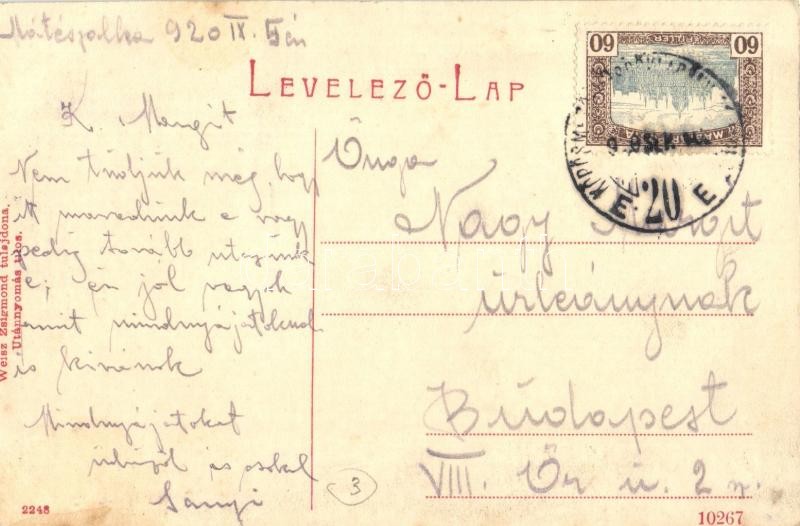 Mátészalka 920 IX. 5 én
LEVELEZŐ-LAP
60 60
MAGYAR
E 20 E
K. Margit
Nem tudjuk még, hogy
itt maradunk e vagy
pedig tovább utazunk
e; én jól vagyok
amit mindnyájatoknak
is kívánok
Mindnyájatokat
üdvözöl és csókol
Sanyi
Nagy Margit
úrleánynak
Budapest
VIII. Őr u. 2
Weisz Zsigmond tulajdona.
Utánnyomás tilos.
2248
3
10267